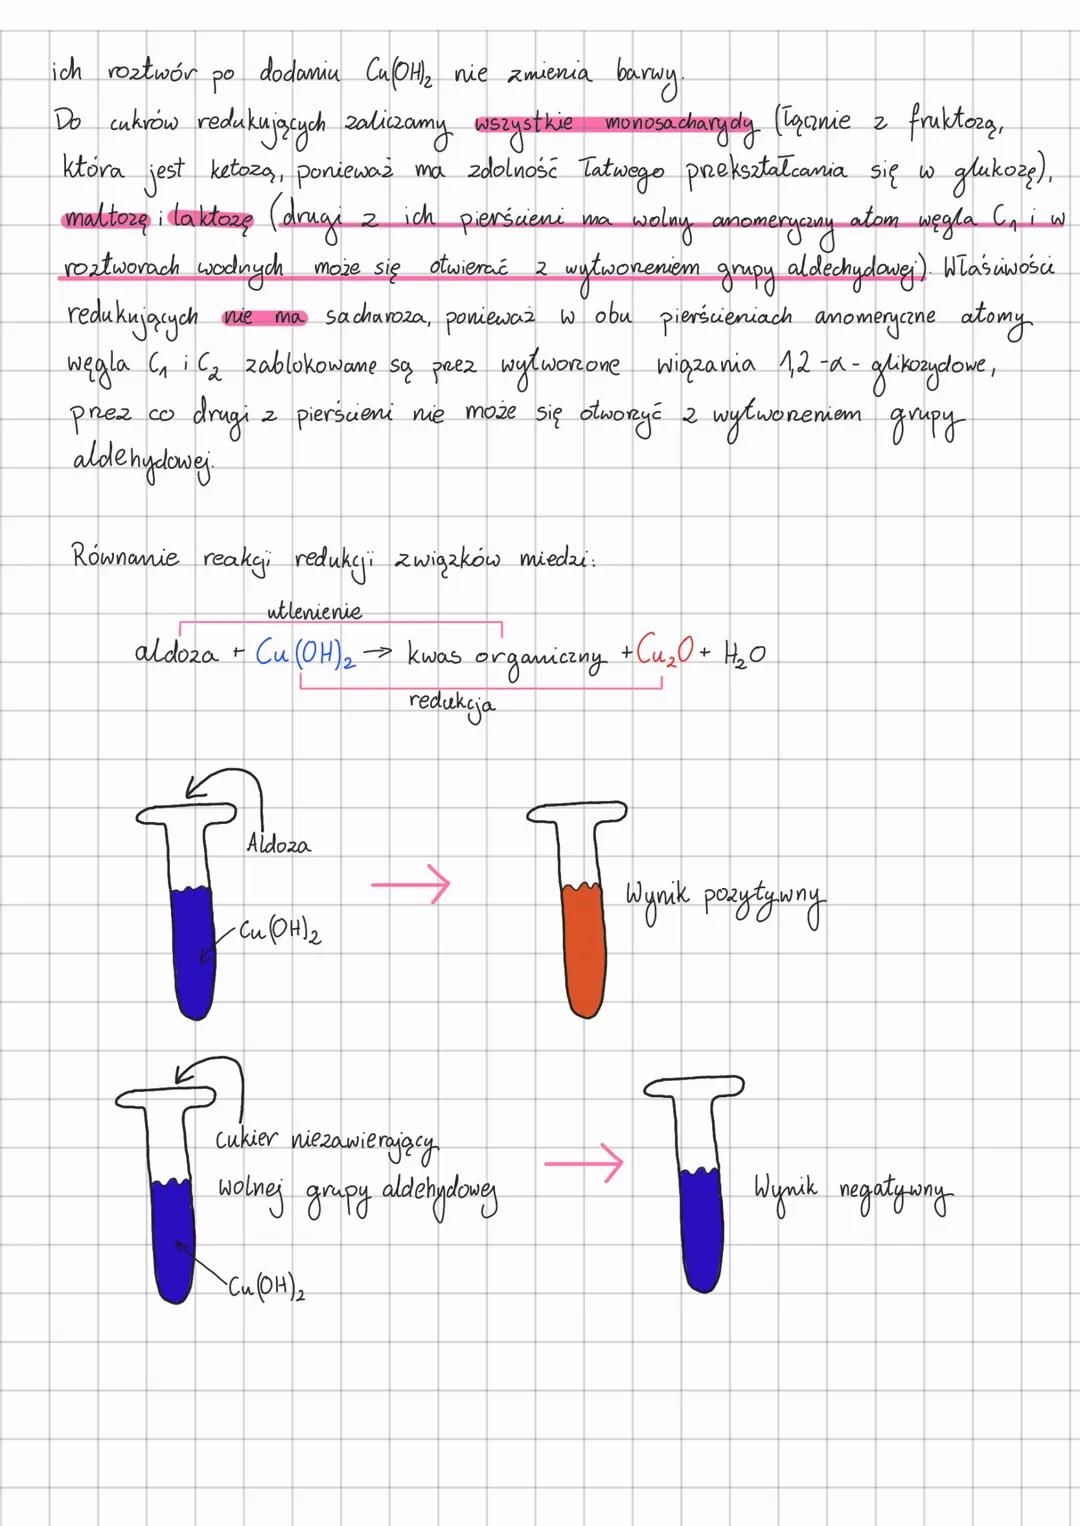 ich roztwór po dodaniu Cu(OH)₂ nie zmienia barwy.
Do cukrów redukujących zaliczamy wszystkie monosacharydy (łącznie z fruktozą,
która jest ketozą, ponieważ ma zdolność łatwego przekształcania się w glukozę),
maltozę i laktozę (drugi z ich pierścieni ma wolny anomeryczny atom węgla C₁ i w
roztworach wodnych może się otwierać z wytworzeniem grupy aldechydowej). Właściwości
redukujących nie ma sacharoza, ponieważ w obu pierścieniach anomeryczne atomy
węgla C₁ i C₂ zablokowane są przez wytworzone wiązania 1,2-α-glikozydowe,
przez co drugi z pierścieni nie może się otworzyć z wytworzeniem grupy
aldehydowej.
Równanie reakcji redukcji związków miedzi:
utlenienie
aldoza + Cu(OH)₂ → kwas organiczny + Cu₂O + H₂O
redukcja
Aldoza
Cu(OH)₂
Wynik pozytywny
Cukier niezawierający
wolnej grupy aldehydowej
Cu(OH)₂
Wynik negatywny